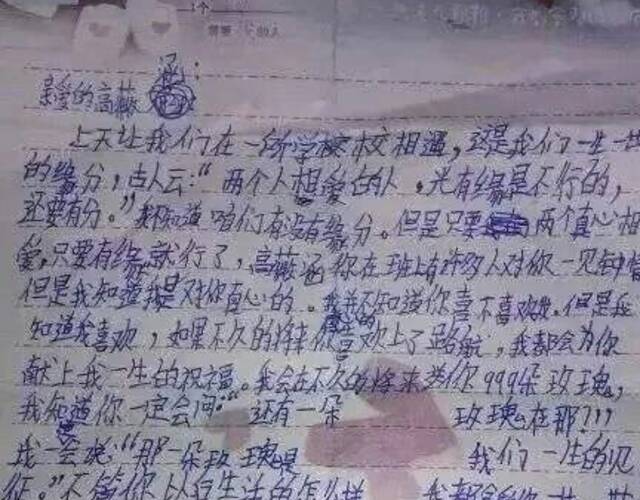 1个
需要 的人
亲爱的高薇涵:
上天让我们在一所学校校相遇,这是我们一生一世
的缘分,古人云:“两个人相爱的人,光有缘是不行的,
还要有分。”我不知道咱们有没有缘分。但是只要两个真心相
爱,只要有缘就行了,高薇涵你在班上有许多人对你一见钟情
但是我知道我是对你真心的。我并不知道你喜不喜欢我。但是我
知道我喜欢,如果不久的将来你喜欢上了路航,我都会为你
献上我一生的祝福。我会在不久的将来送你999朵玫瑰,
我知道你一定会问:“还有一朵 玫瑰在那???
我一会说:“那一朵玫瑰是 我们一生的见
证。”不管你以后生活的怎么样 我都会